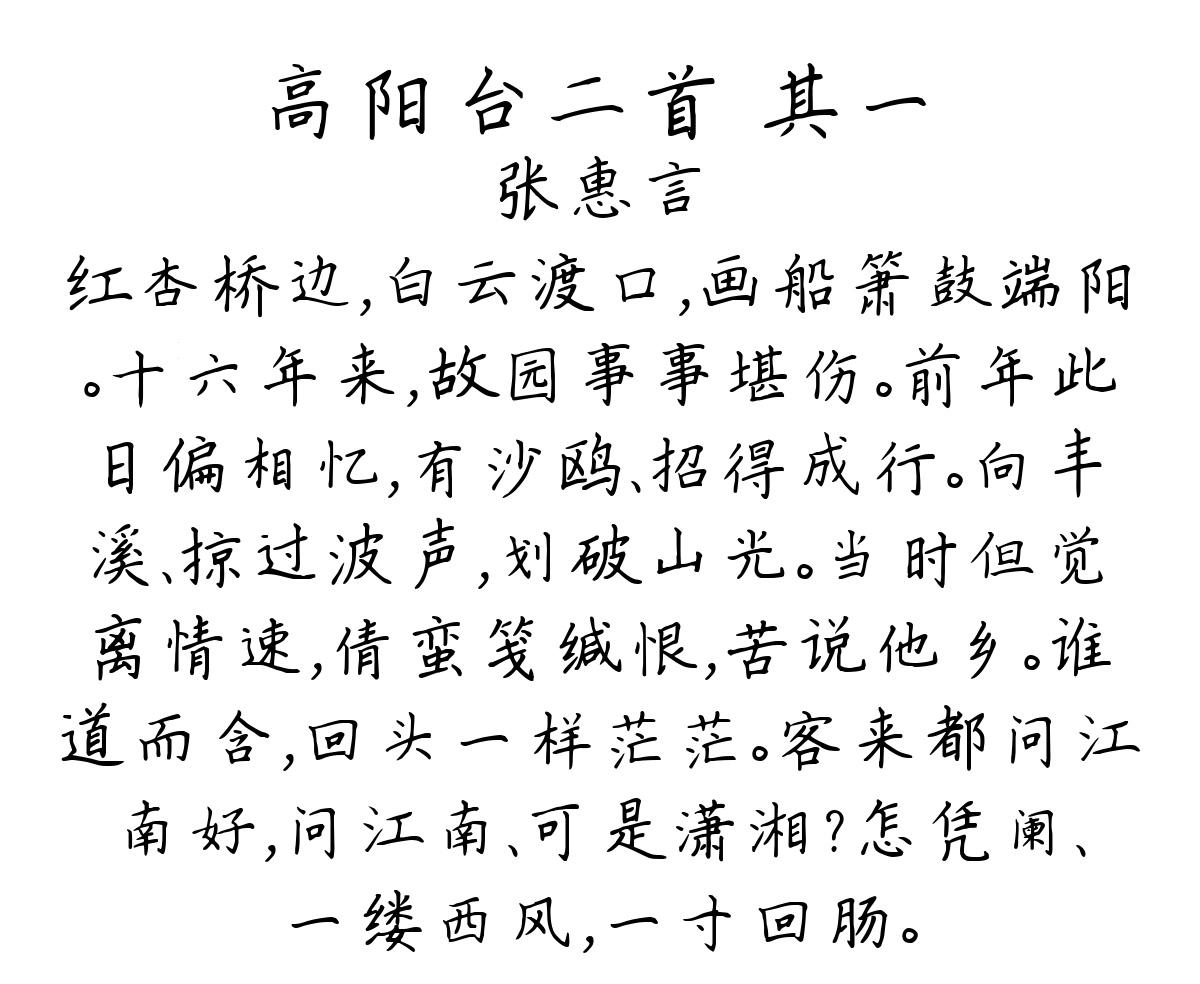 高阳台二首 其一
张惠言
红杏桥边,白云渡口,画船箫鼓端阳
。十六年来,故园事事堪伤。前年此
日偏相忆,有沙鸥、招得成行。向丰
溪、掠过波声,划破山光。当时但觉
离情速,倩蛮笺缄恨,苦说他乡。谁
道而含,回头一样茫茫。客来都问江
南好,问江南、可是潇湘?怎凭阑、
一缕西风,一寸回肠。